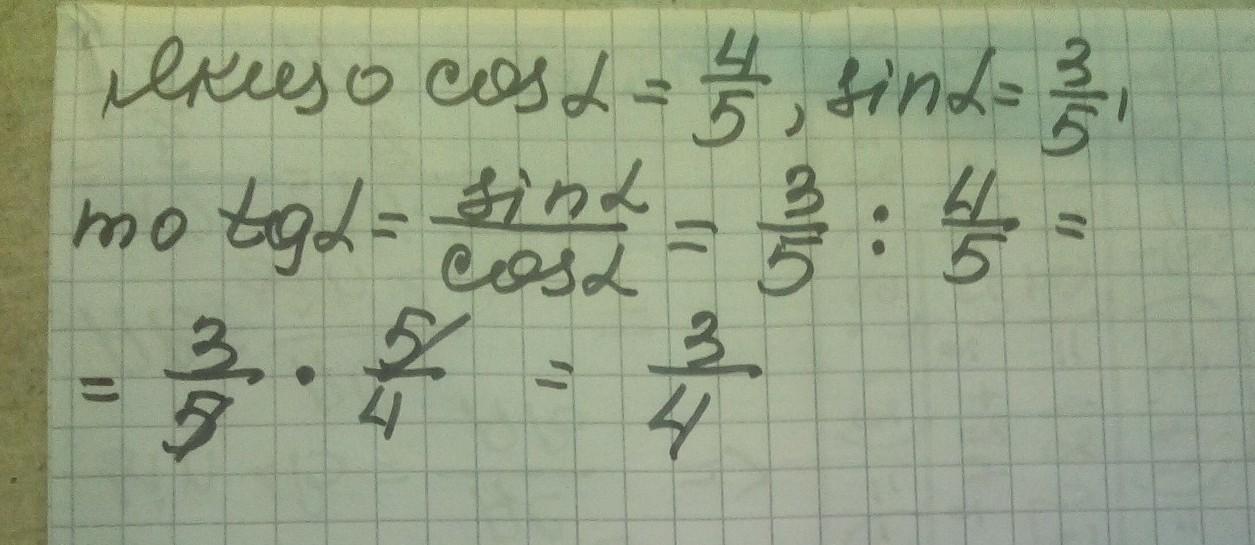 Якщо cos α = 4/5, sin α = 3/5,
то tg α = sin α / cos α = 3/5 : 4/5 =
= 3/5 · 5/4 = 3/4